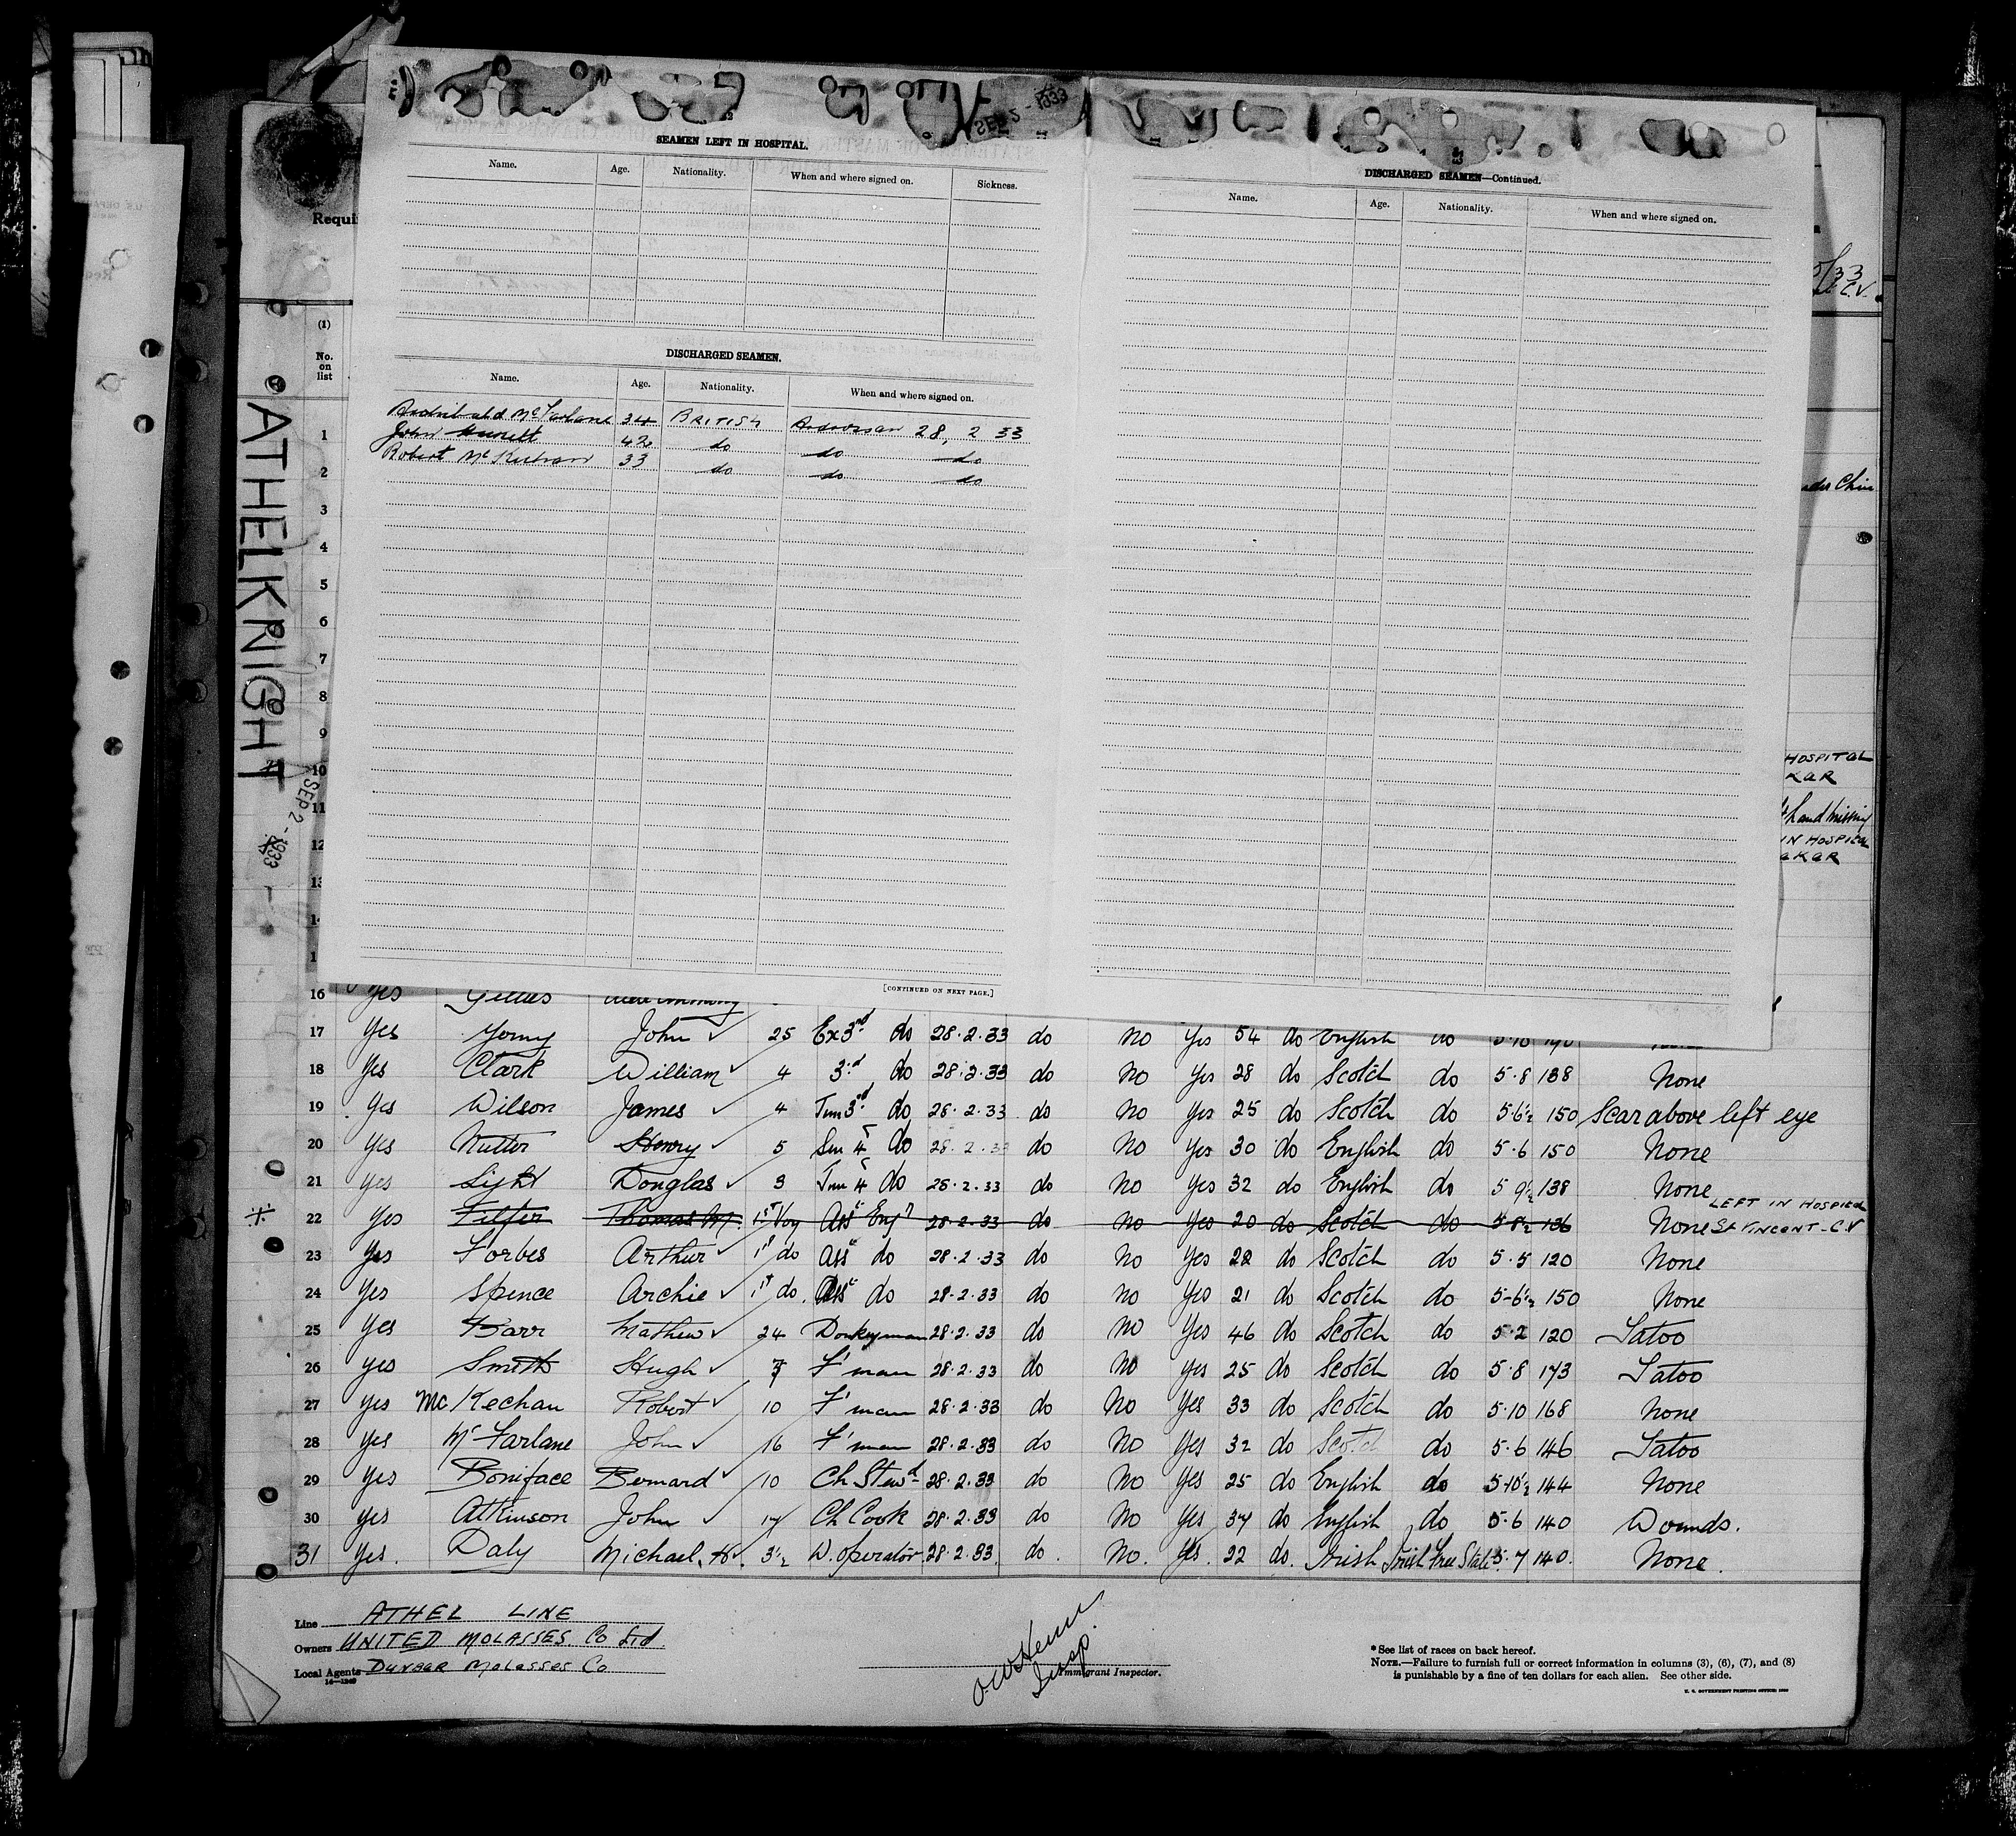 SEP 2 - 1933
SEAMEN LEFT IN HOSPITAL.
Name. Age. Nationality. When and where signed on. Sickness.
DISCHARGED SEAMEN.
Name. Age. Nationality. When and where signed on.
Archibald McFarlane 34 BRITISH Ardrossan 28, 2 33
John 42 do do do
Robert 33 do do do
[CONTINUED ON NEXT PAGE.]
DISCHARGED SEAMEN—Continued.
Name. Age. Nationality. When and where signed on.
Requi
(1)
No. on list
ATHELKNIGHT
SEP 2 - 1933
/33
C.V.
1
2
3
4
5
6
7
8
9
10
11
12
13
under Chin
HOSPITAL
KAR
hand missing
IN HOSPITAL
AKAR
16 Yes Gillies
17 Yes Young John 25 Ex 3rd do 28.2.33 do No Yes 54 do English do 5.10 190
18 Yes Clark William 4 3rd do 28.2.33 do No Yes 28 do Scotch do 5.8 138 None
19 Yes Wilson James 4 Jun 3rd do 28.2.33 do No Yes 25 do Scotch do 5.6½ 150 Scar above left eye
20 Yes Nutter Henry 5 Sen 4 do 28.2.33 do No Yes 30 do English do 5.6 150 None
21 Yes Light Douglas 3 Jun 4 do 28.2.33 do No Yes 32 do English do 5 9½ 138 None
22 Yes Telfer Thomas M. 1st Voy Asst Engr 28.2.33 do No Yes 20 do Scotch do 5.8½ 136 None LEFT IN HOSPITAL
St VINCENT - C.V
23 Yes Forbes Arthur 1st do Asst do 28.2.33 do No Yes 22 do Scotch do 5.5 120 None
24 Yes Spence Archie 1st do Asst do 28-2.33 do No Yes 21 do Scotch do 5-6½ 150 None
25 Yes Barr Mathew 24 Donkeyman 28.2.33 do No Yes 46 do Scotch do 5.2 120 Tatoo
26 Yes Smith Hugh 7 F'man 28.2.33 do No Yes 25 do Scotch do 5.8 173 Tatoo
27 Yes Mc Kechan Robert 10 F'man 28.2.33 do No Yes 33 do Scotch do 5.10 168 None
28 Yes McFarlane John 16 F'man 28.2.33 do No Yes 32 do Scotch do 5.6 146 Tatoo
29 Yes Boniface Bernard 10 Ch Stewd 28.2.33 do No Yes 25 do English do 5-10½ 144 None
30 Yes Atkinson John 17 Ch Cook 28.2.33 do No Yes 37 do English do 5.6 140 Wounds.
31 Yes. Daly Michael. H. 3½ W. operator 28.2.33. do. No. Yes. 22 do. Irish Irish Free State 5.7 140. None.
Line ATHEL LINE
Owners UNITED MOLASSES Co Ltd
Local Agents DUNBAR MOLASSES Co
Insp.
Immigrant Inspector.
*See list of races on back hereof.
NOTE.—Failure to furnish full or correct information in columns (3), (6), (7), and (8)
is punishable by a fine of ten dollars for each alien. See other side.